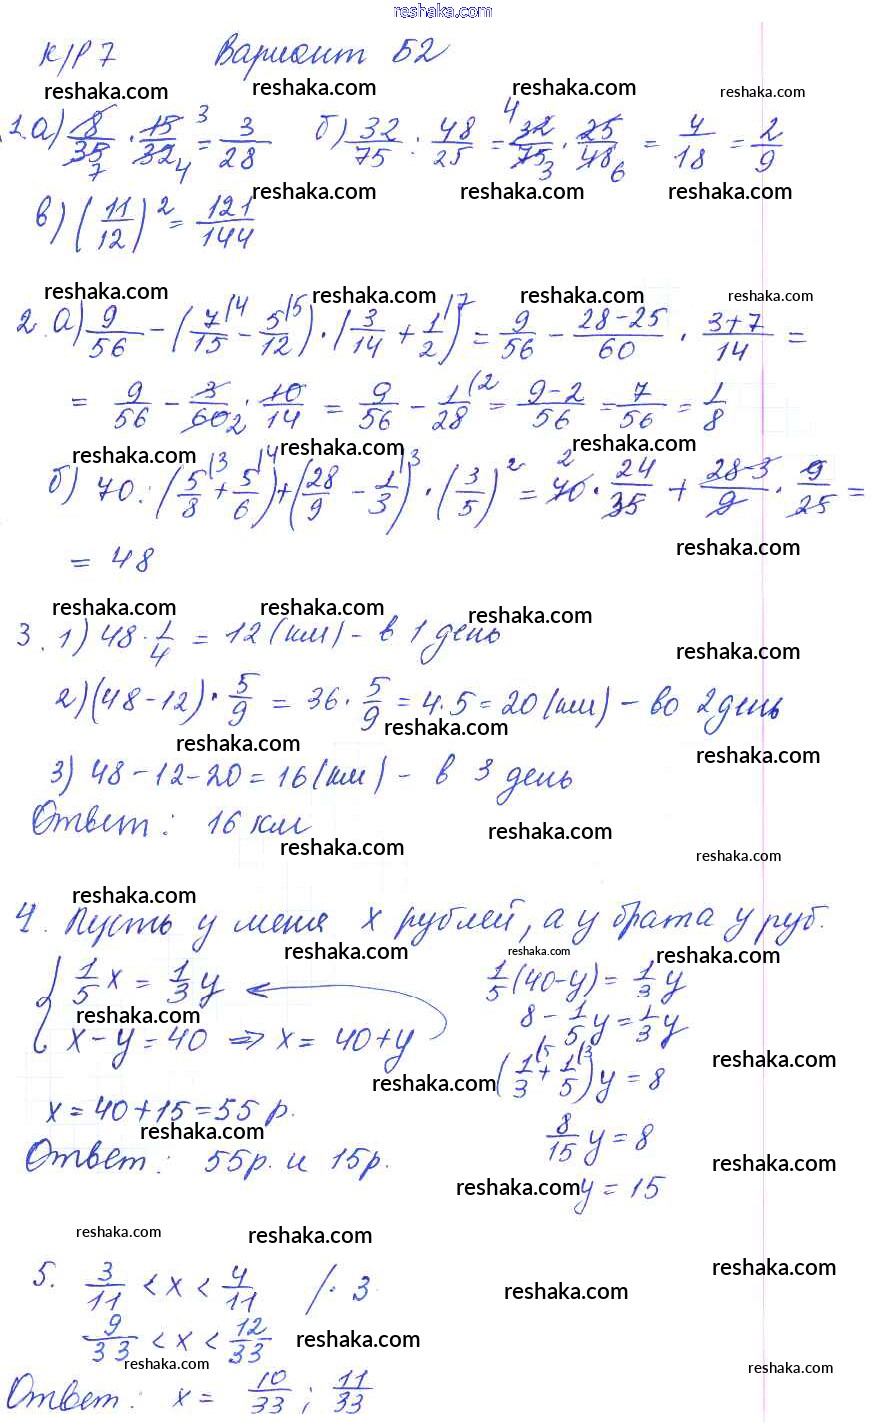 reshaka.com
К/Р 7 Вариант Б2
reshaka.com reshaka.com reshaka.com reshaka.com
1.а) 8/35 · 15/32 = 3/28 б) 32/75 : 48/25 = 32/75 · 25/48 = 4/18 = 2/9
reshaka.com reshaka.com reshaka.com
в) (11/12)² = 121/144
reshaka.com reshaka.com reshaka.com reshaka.com
2. а) 9/56 − (7/15|4 − 5/12|5) · (3/14 + 1/2|7) = 9/56 − 28−25/60 · 3+7/14 =
= 9/56 − 3/60 · 10/14 = 9/56 − 1/28|2 = 9−2/56 = 7/56 = 1/8
reshaka.com reshaka.com reshaka.com
б) 70 : (5/8|3 + 5/6|4) + (28/9 − 1/3|3) · (3/5)² = 70 · 24/35 + 28−3/9 · 9/25 =
= 48
reshaka.com
reshaka.com reshaka.com reshaka.com
3. 1) 48 · 1/4 = 12 (км) − в 1 день
reshaka.com
2) (48−12) · 5/9 = 36 · 5/9 = 4·5 = 20 (км) − во 2 день
reshaka.com reshaka.com reshaka.com
3) 48−12−20 = 16 (км) − в 3 день
Ответ: 16 км
reshaka.com reshaka.com reshaka.com
reshaka.com
4. Пусть у меня x рублей, а у брата y руб.
reshaka.com reshaka.com reshaka.com
{ 1/5 x = 1/3 y 1/5 (40−y) = 1/3 y
reshaka.com
x − y = 40 => x = 40+y 8 − 1/5 y = 1/3 y
reshaka.com reshaka.com
(1/3|5 + 1/5|3) y = 8
x = 40+15 = 55 р.
reshaka.com
8/15 y = 8
Ответ: 55р. и 15р.
reshaka.com reshaka.com
y = 15
reshaka.com reshaka.com reshaka.com
5. 3/11 < x < 4/11 /· 3
reshaka.com
9/33 < x < 12/33
reshaka.com reshaka.com reshaka.com
Ответ: x = 10/33 ; 11/33